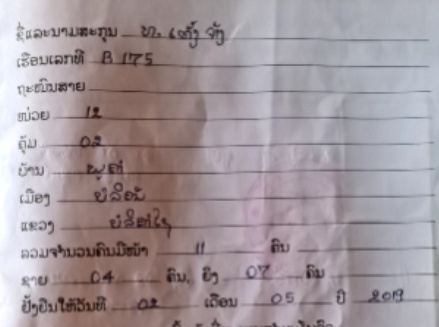 ຊື່ແລະນາມສະກຸນ ທ. ເຫັງ ຈັງ
ເຮືອນເລກທີ B 175
ຖະໜົນສາຍ
ໜ່ວຍ 12
ຄຸ້ມ 02
ບ້ານ ພູຄຳ
ເມືອງ ບໍລິຄັນ
ແຂວງ ບໍລິຄຳໄຊ
ລວມຈຳນວນຄົນມີໜ້າ 11 ຄົນ
ຊາຍ 04 ຄົນ, ຍິງ 07 ຄົນ
ຢັ້ງຢືນໃຫ້ວັນທີ 02 ເດືອນ 05 ປີ 2019